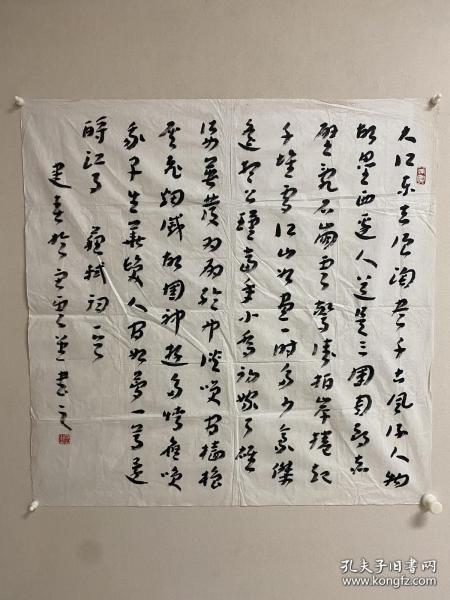 大江东去浪淘尽千古风流人物
故垒西边人道是三国周郎赤
壁乱石崩云惊涛拍岸捲起
千堆雪江山如画一时多少豪傑
遥想公瑾当年小乔初嫁了雄
姿英发羽扇纶巾谈笑间樯橹
灰飞烟灭故国神游多情应笑
我早生华发人间如梦一尊还
酹江月 苏轼词一首
书之
孔夫子旧书网
www.kongfz.com